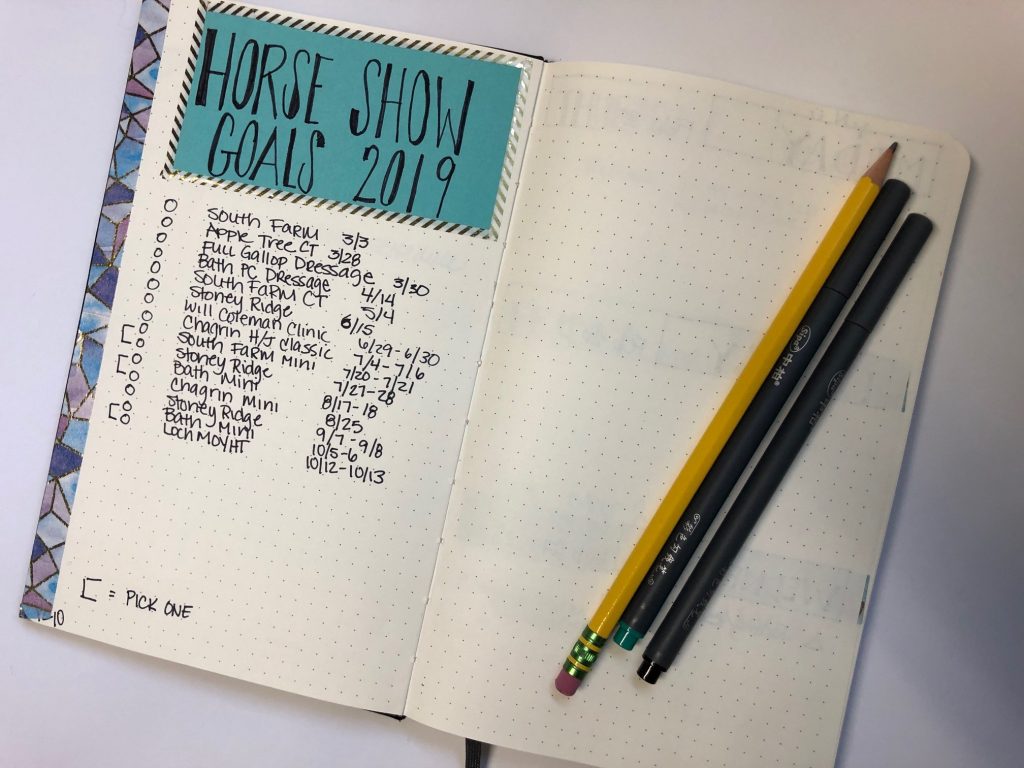 HORSE SHOW
GOALS 2019
SOUTH FARM 3/3
APPLE TREE CT 3/28
FULL GALLOP DRESSAGE 3/30
BATH PC DRESSAGE 4/14
SOUTH FARM CT 5/4
STONEY RIDGE 6/15
WILL COLEMAN CLINIC 6/29-6/30
CHAGRIN H/J CLASSIC 7/4-7/6
SOUTH FARM MINI 7/20-7/21
STONEY RIDGE 7/27-28
BATH MINI 8/17-18
CHAGRIN MINI 8/25
STONEY RIDGE 9/7-9/8
BATH MINI 10/5-6
LOCH MOY HT 10/12-10/13
[ = PICK ONE
Sipa 中柏